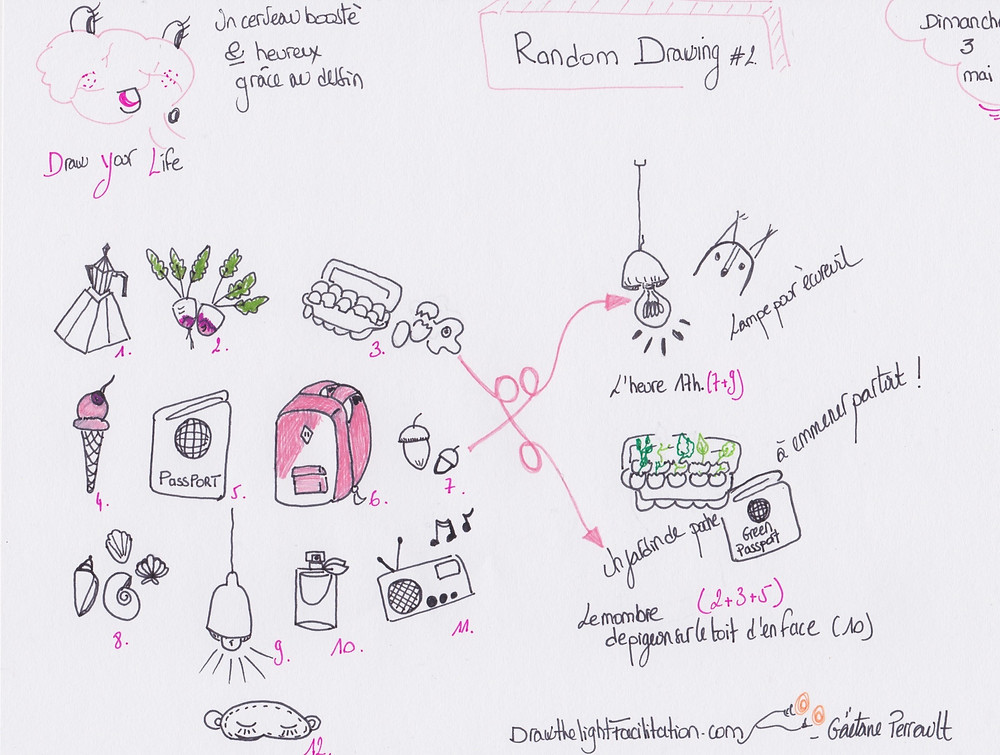 Un cerveau boosté
& heureux
grâce au dessin
Random Drawing #2
Dimanche
3
mai
Draw your Life
1.
2.
3.
4.
PassPORT
5.
6.
7.
8.
9.
10.
11.
12.
Lampe pour écureuil
L'heure 17h. (7+9)
à emmener partout !
Un jardin de poche
Green
Passport
(2+3+5)
Le nombre
de pigeon sur le toit d'en face (10)
DrawthelightFacilitation.com
- Gaëtane Perrault